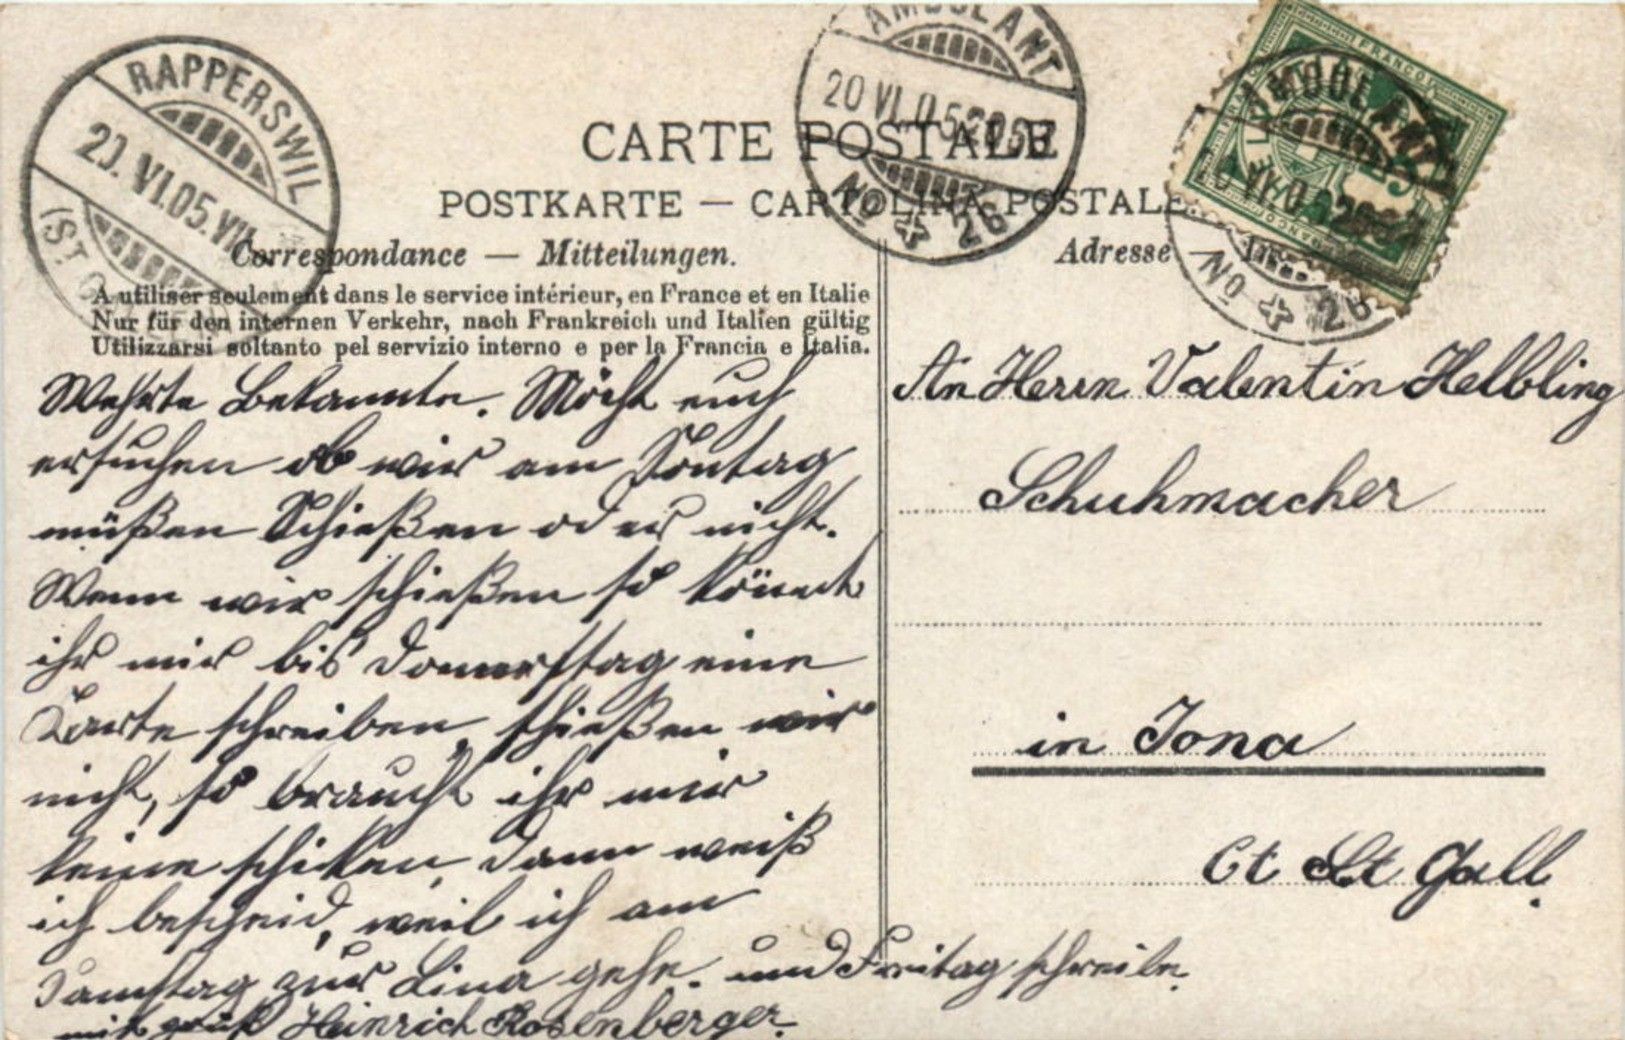 RAPPERSWIL
20. VI. 05. VIII
(ST.
AMBULANT
20 VI. 05
No 26
AMBULANT
No 26
FRANCO
CARTE POSTALE
POSTKARTE — CARTOLINA POSTALE
Correspondance — Mitteilungen.
Adresse
A utiliser seulement dans le service intérieur, en France et en Italie
Nur für den internen Verkehr, nach Frankreich und Italien gültig
Utilizzarsi soltanto pel servizio interno e per la Francia e Italia.
Wehrte Bekannte. Möcht euch
ersuchen ob wir am Sontag
müßen Schießen oder nicht.
Wenn wir schießen so könnt
ihr mir bis Donnerstag eine
Karte schreiben, schießen wir
nicht, so braucht ihr mir
keine schiken, dann weiß
ich bescheid, weil ich am
Samstag zur Lina gehe. und Freitag schreibe.
mit gruß Heinrich Rosenberger.
An Herrn Valentin Helbling
Schuhmacher
in Jona
Ct St Gall.